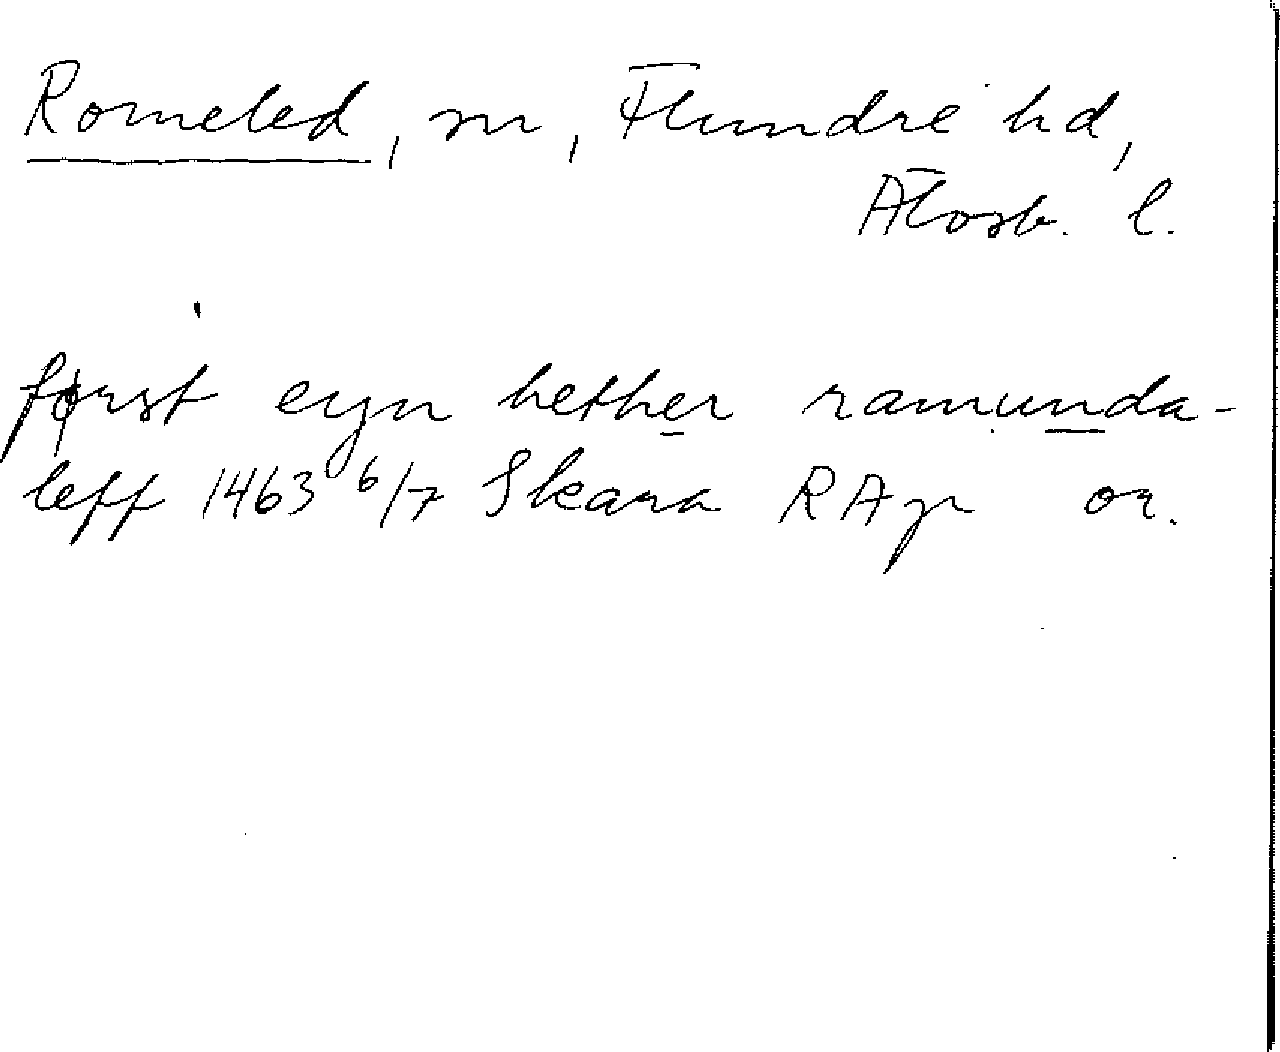 Romeled, sn, Flundre hd,
Älvsb. l.
først eyn hether ramunda-
leff 1463 6/7 Skara RAp or.